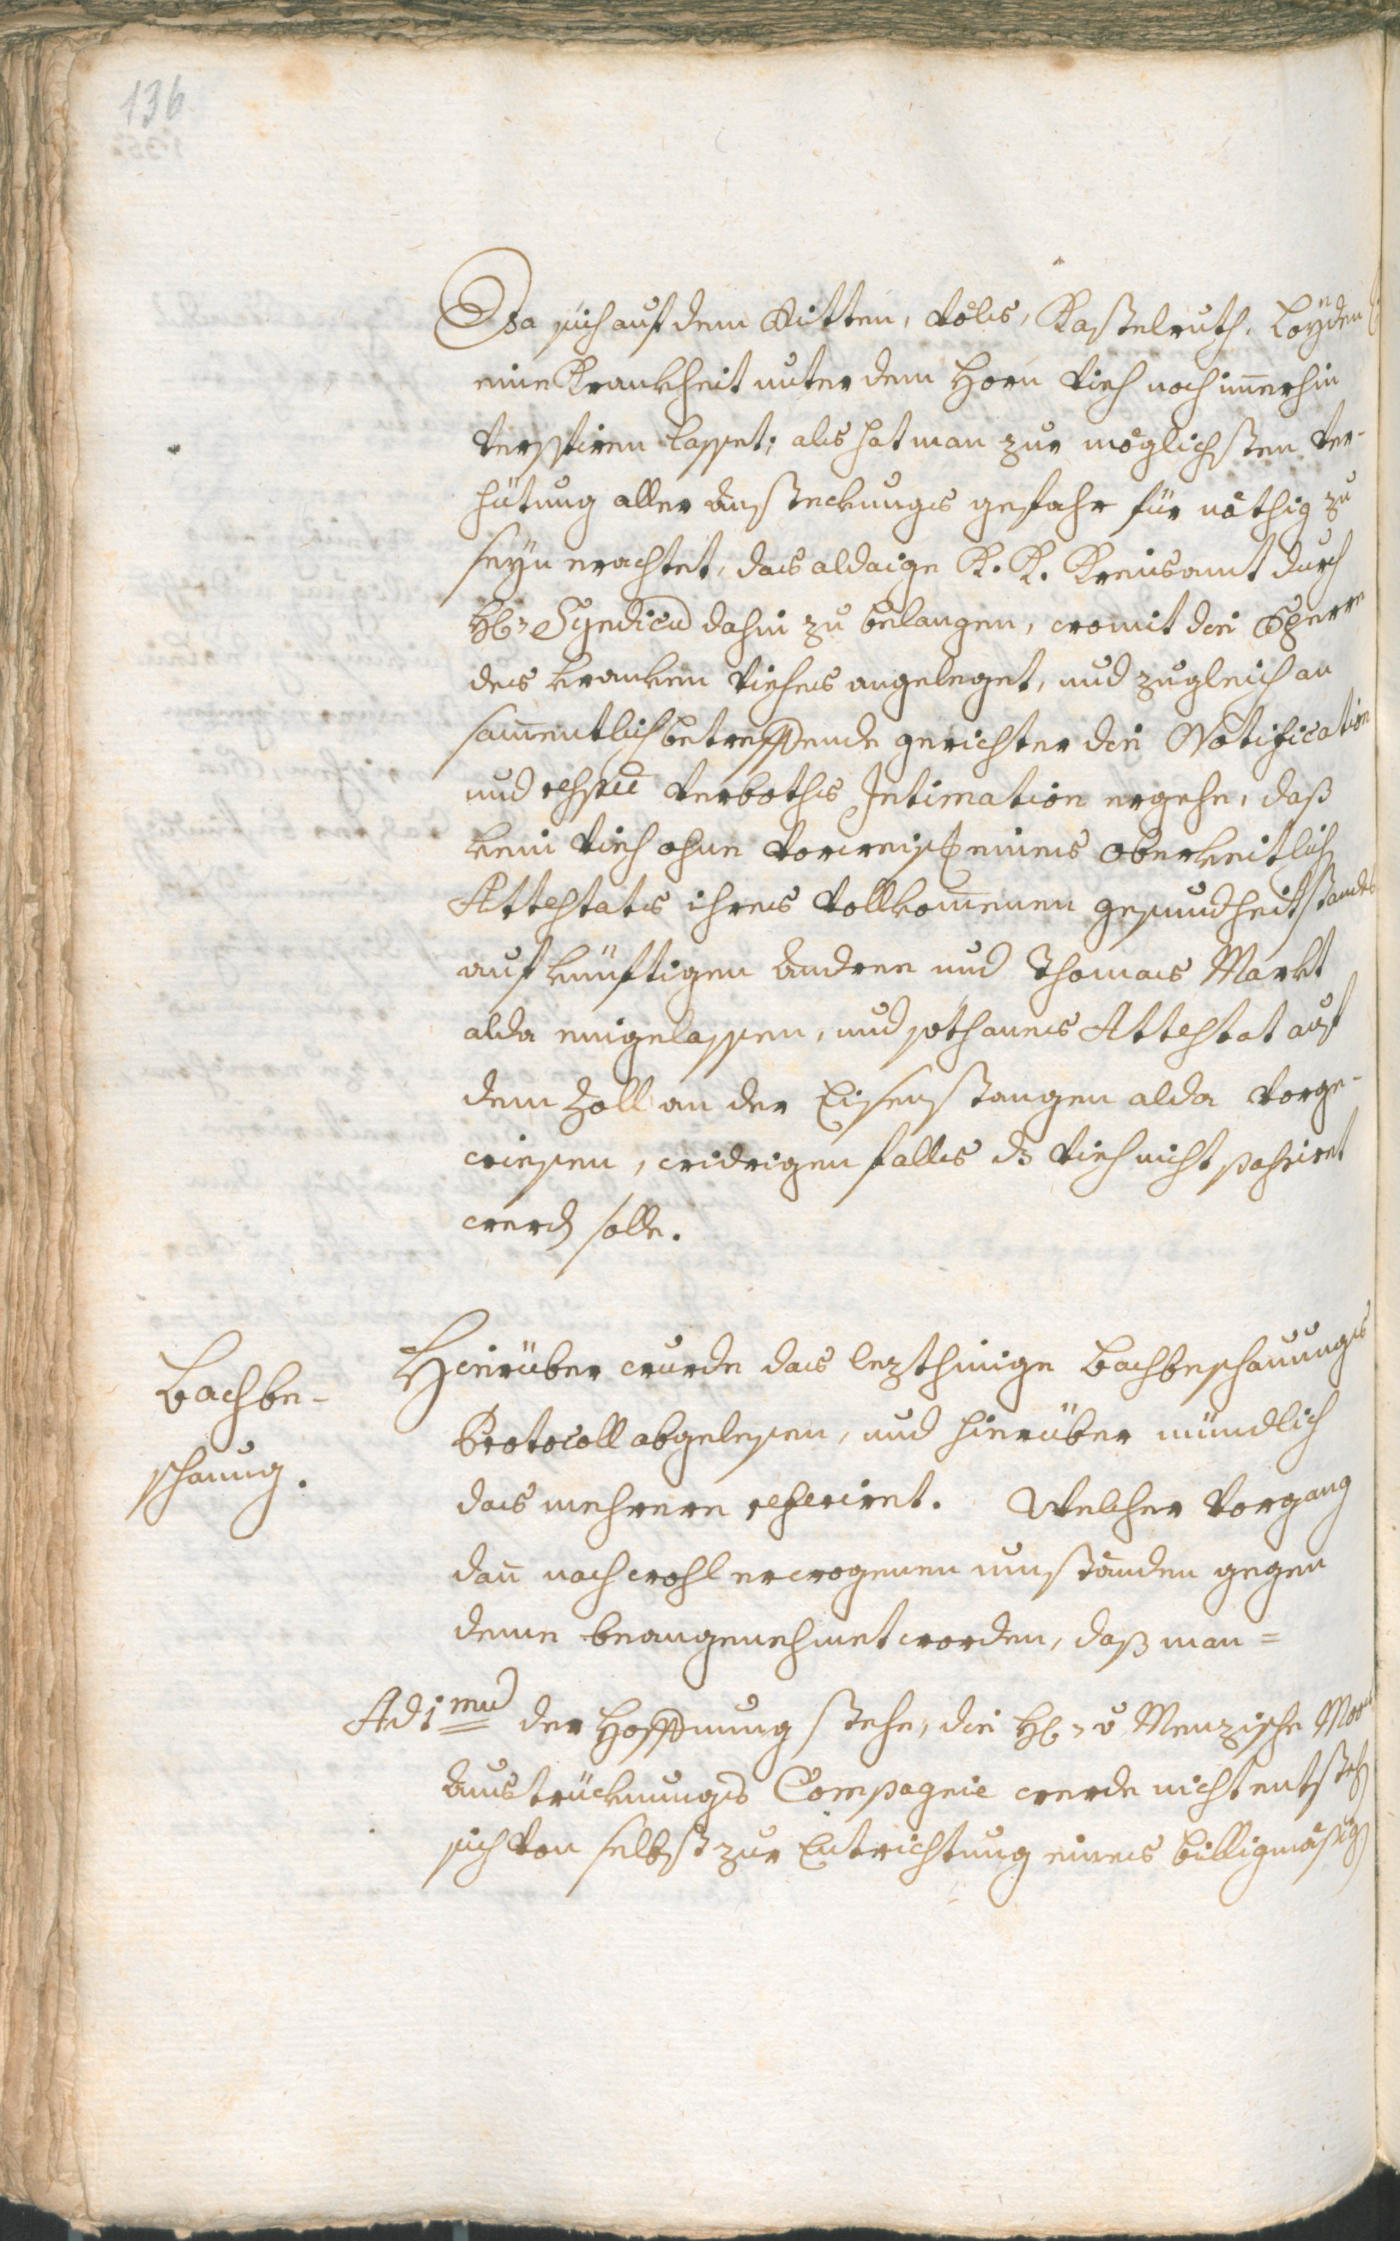 136
Da sich auf dem Ritten, Völs, Kastelruth, Layen
eine Krankheit unter dem Horn Vieh noch im̄erhin
verspüren lasset; als hat man zur möglichsten Ver-
hütung aller Ansteckungs gefahr für nöthig zu
seyn erachtet, das aldaige K. K. Kreisamt durch
H: Syndicū dahin zu belangen, womit die Sperre
des kranken Viehes angeleget, und zugleich an
sam̄entlich betreffende gerichter die Notification
und respve Verboths Intimation ergehe, daß
kein Vieh ohne Vorweisung eines Oberkeitlich
Attestats ihres Vollkom̄enen gesundheitstandes
auf künftigen Andree und Thomas Markt
alda eingelassen, und sothanes Attestat auf
dem Zoll an der Eisenstangen alda Vorge-
wiesen, widrigen falls dz Vieh nicht passiret
werdn solle.
Bachbe-
schauung.
Hierüber wurde das lezthinige Bachbeschauungs
Protocoll abgelesen, und hierüber mündlich
das mehrere referiret. Welcher Vorgang
dan̄ nach wohl erwogenen umständen gegen
deme beangenehmet worden, daß man =
Ad 1mū der Hoffnung stehe, die H: v Menzische Moos
Austrücknungs Compagnie werde nicht entstehn
sich Von selbst zur Entrichtung eines billigmäsign